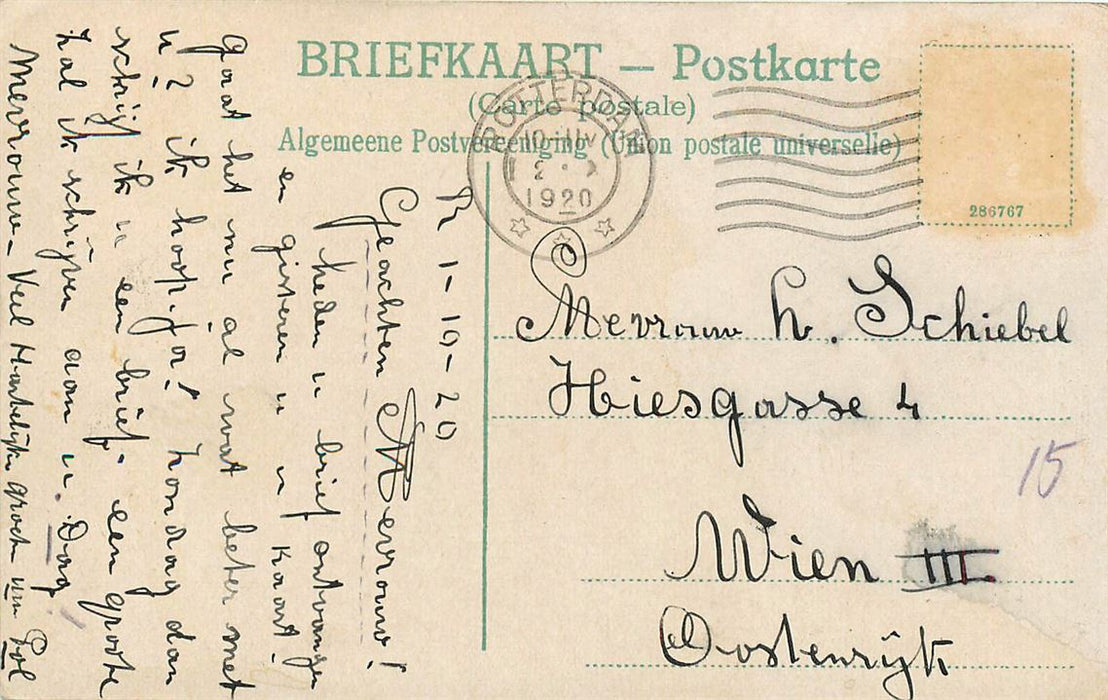 BRIEFKAART — Postkarte
(Carte postale)
Algemeene Postvereeniging (Union postale universelle)
ROTTERDAM
1920
286767
Mevrouw h. Schiebel
Hiesgasse 4
Wien III.
Oostenrijk
15
R 1-10-20
Geachten Mevrouw!
heden u brief ontvangen
en gisteren u u kaart!
gaat het nu al wat beter met
u? ik hoop ja! Zondag dan
schrijf ik u een brief. een groote
zal ik schrijven aan u. Dag!
Mevrouw Veel Hartelijke groeten van Pol